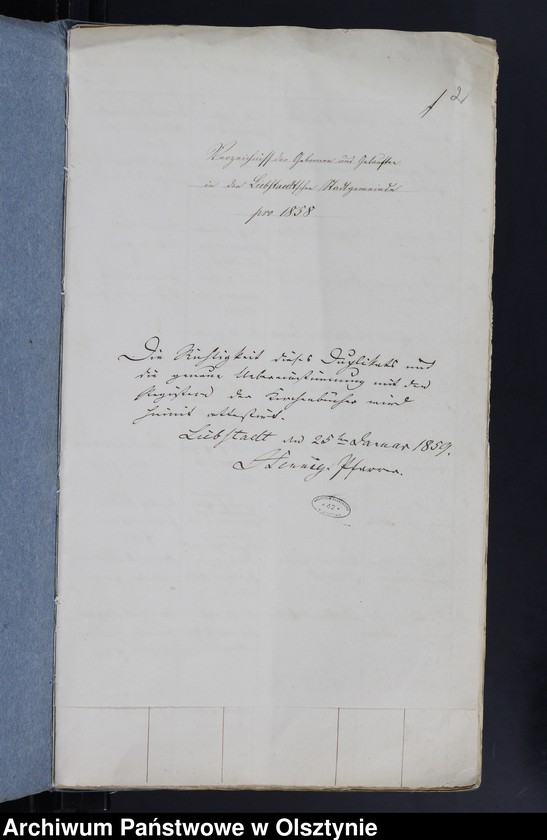 2
Verzeichniß der Gebornen und Getauften
in der Liebstadtschen Stadtgemeinde
pro 1858
Die Richtigkeit dieses Duplikats und
die genaue Uebereinstimmung mit den
Registern der Kirchenbücher wird
hiemit attestirt.
Liebstadt den 25ten Januar 1859.
Hennig. Pfarrer.
*62*
Archiwum Państwowe w Olsztynie